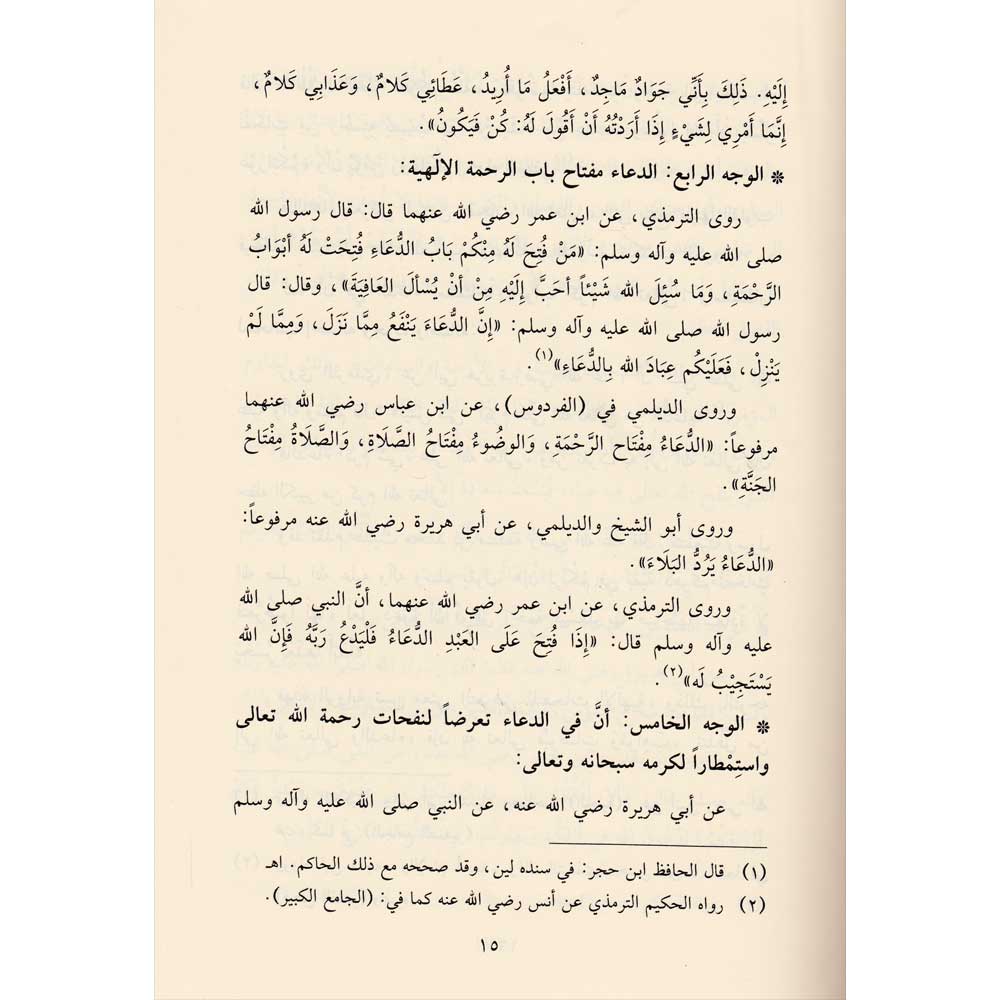 إِلَيْهِ. ذَلِكَ بِأَنِّي جَوَادٌ مَاجِدٌ، أَفْعَلُ مَا أُرِيدُ، عَطَائِي كَلَامٌ، وَعَذَابِي كَلَامٌ،
إِنَّمَا أَمْرِي لِشَيْءٍ إِذَا أَرَدْتُهُ أَنْ أَقُولَ لَهُ: كُنْ فَيَكُونُ».
* الوجه الرابع: الدعاء مفتاح باب الرحمة الإلٓهية:
روى الترمذي، عن ابن عمر رضي الله عنهما قال: قال رسول الله
صلى الله عليه وآله وسلم: «مَنْ فُتِحَ لَهُ مِنْكُمْ بَابُ الدُّعَاءِ فُتِحَتْ لَهُ أَبْوَابُ
الرَّحْمَةِ، وَمَا سُئِلَ الله شَيْئاً أَحَبَّ إِلَيْهِ مِنْ أَنْ يُسْأَلَ العَافِيَةَ»، وقال: قال
رسول الله صلى الله عليه وآله وسلم: «إِنَّ الدُّعَاءَ يَنْفَعُ مِمَّا نَزَلَ، وَمِمَّا لَمْ
يَنْزِلْ، فَعَلَيْكُم عِبَادَ الله بِالدُّعَاءِ»(١).
وروى الديلمي في (الفردوس)، عن ابن عباس رضي الله عنهما
مرفوعاً: «الدُّعَاءُ مِفْتَاح الرَّحْمَةِ، وَالوضُوءُ مِفْتَاحُ الصَّلَاةِ، وَالصَّلَاةُ مِفْتَاحُ
الجَنَّةِ».
وروى أبو الشيخ والديلمي، عن أبي هريرة رضي الله عنه مرفوعاً:
«الدُّعَاءُ يَرُدُّ البَلَاءَ».
وروى الترمذي، عن ابن عمر رضي الله عنهما، أنَّ النبي صلى الله
عليه وآله وسلم قال: «إِذَا فُتِحَ عَلَى العَبْدِ الدُّعَاءُ فَلْيَدْعُ رَبَّهُ فَإِنَّ الله
يَسْتَجِيْبُ لَه»(٢).
* الوجه الخامس: أنَّ في الدعاء تعرضاً لنفحات رحمة الله تعالى
واستِمْطاراً لكرمه سبحانه وتعالى:
عن أبي هريرة رضي الله عنه، عن النبي صلى الله عليه وآله وسلم
(١) قال الحافظ ابن حجر: في سنده لين، وقد صححه مع ذلك الحاكم. اهـ
(٢) رواه الحكيم الترمذي عن أنس رضي الله عنه كما في: (الجامع الكبير).
١٥